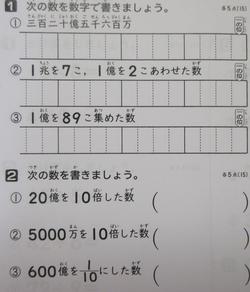 1 次の数を数字で書きましょう。 各5点(15)
① 三百二十億五千六百万
一の位
② 1兆を7こ、1億を2こあわせた数
一の位
③ 1億を89こ集めた数
一の位
2 次の数を書きましょう。 各5点(15)
① 20億を10倍した数 ( )
② 5000万を10倍した数 ( )
③ 600億を1/10にした数 ( )